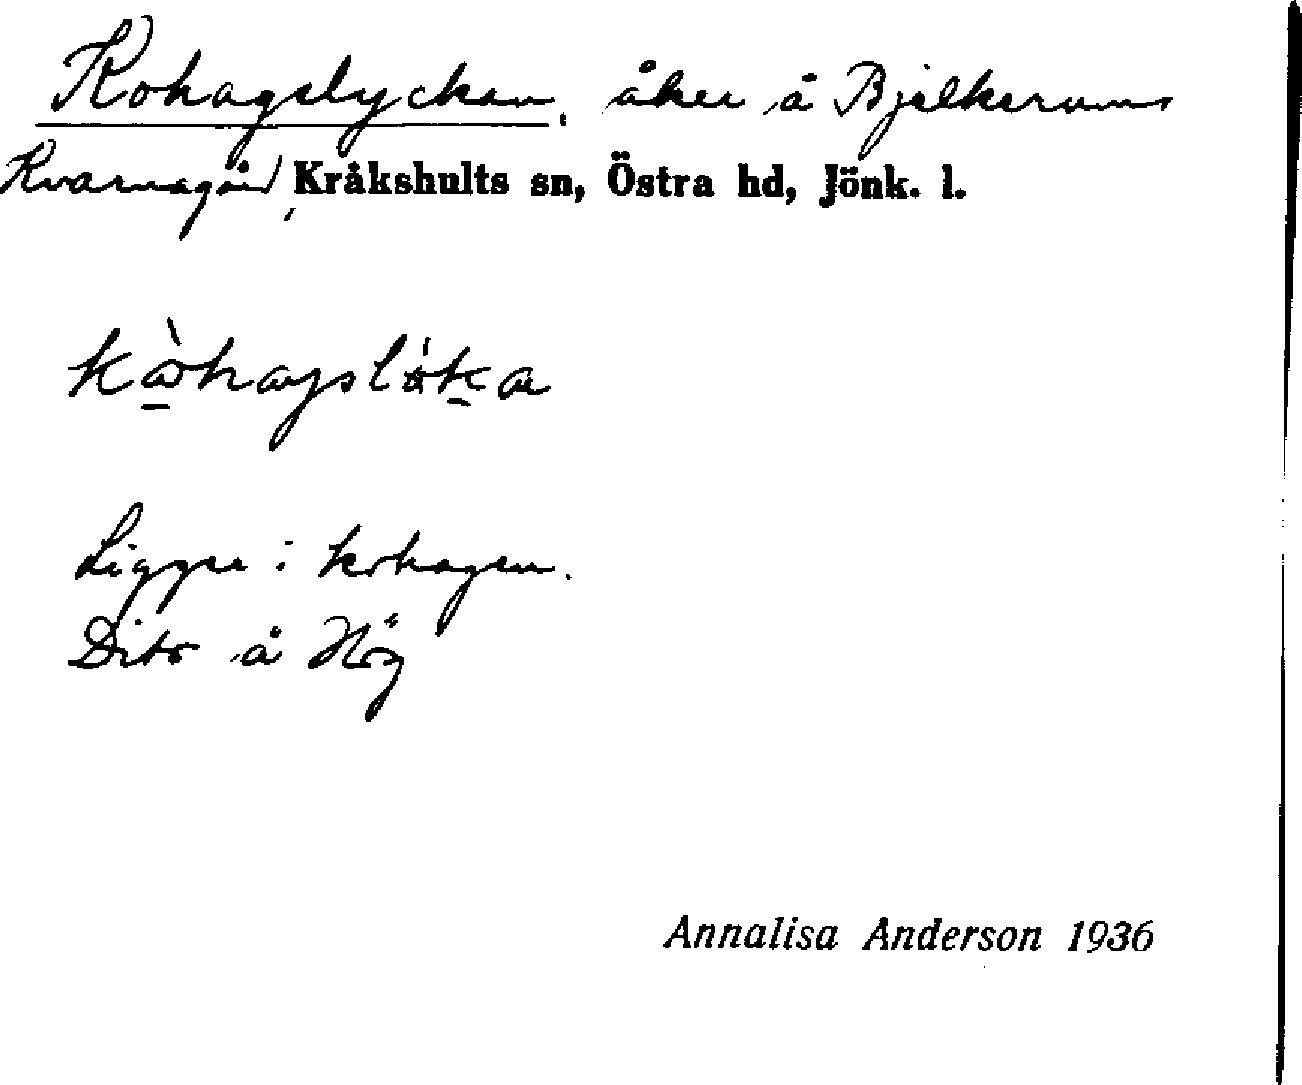 Kohagslyckan, åker å Bjälkerums
Kvarnagård, Kråkshults sn, Östra hd, Jönk. l.
Ligger i kohagen.
Dito å Hög
Annalisa Anderson 1936